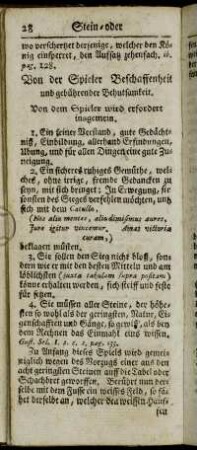 28 Stein-oder
wo verschertzet derjenige, welcher den Kö-
nig einsperret, den Aufsatz zehenfach,
pag. 128.
Von der Spieler Beschaffenheit
und gebührender Behutsamkeit.
Von dem Spieler wird erfordert
insgemein,
1. Ein feiner Verstand, gute Gedächt-
niß, Einbildung, allerhand Erfindungen,
Übung, und für allen Dingen eine gute Zu-
neigung.
2. Ein sicheres ruhiges Gemüthe, wel-
ches, ohne irrige, fremde Gedancken zu
seyn, mit sich bringet; In Erwegung, sie
sonsten des Sieges verfehlen möchten, und
sich mit dem Catullo.
(Nos alio mentes, alio divisimus aures,
Jure igitur vincemur, Amat victoria
curam,)
beklagen müssen.
3. Sie sollen den Sieg nicht bloß, son-
dern wie er mit den besten Mitteln und am
löblichsten (juxta tabulam supra positam)
könne erhalten werden, sich steiff und feste
für setzen.
4. Sie müssen aller Steine, der höhe-
sten so wohl als der geringsten, Natur, Ei-
genschafften und Gänge, so gewiß, als bey
dem Rechnen das Einmahl eins wissen.
Gust. Sel. l. 2. c. 2. pag. 133.
Zu Anfang dieses Spiels wird gemei-
niglich wegen des Vorzugs einer aus den
acht geringsten Steinen auff die Tabel oder
Schachbret geworffen. Berührt nun der-
selbe mit dem Fusse ein weisses Feld, so fäl-
let derselbe an, welcher den weissen Hauf-
fen